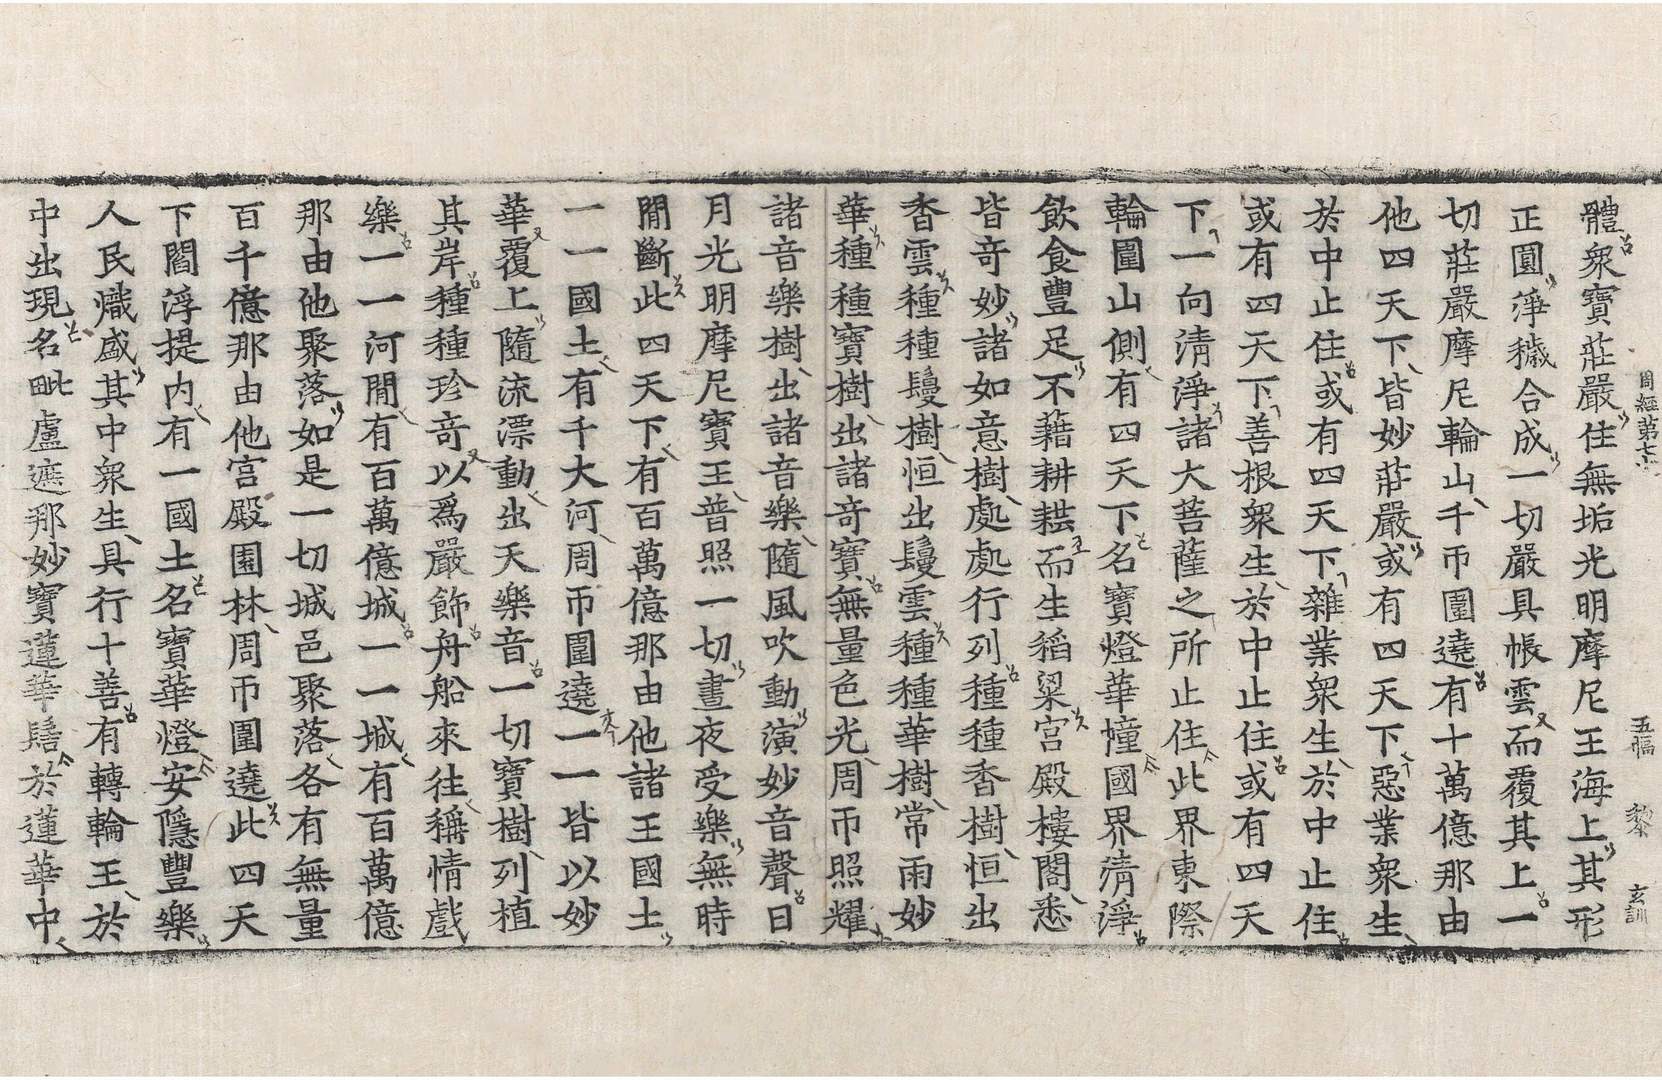 周經第七十
五幅
玄訓
體衆寶莊嚴住無垢光明摩尼王海上其形
正圓淨穢合成一切嚴具帳雲而覆其上一
切莊嚴摩尼輪山千帀圍遶有十萬億那由
他四天下皆妙莊嚴或有四天下惡業衆生
於中止住或有四天下雜業衆生於中止住
或有四天下善根衆生於中止住或有四天
下一向淸淨諸大菩薩之所止住此界東際
輪圍山側有四天下名寶燈華幢國界淸淨
飮食豊足不藉耕耘而生稻粱宮殿樓閣悉
皆奇妙諸如意樹處處行列種種香樹恒出
香雲種種鬘樹恒出鬘雲種種華樹常雨妙
華種種寶樹出諸奇寶無量色光周帀照耀
諸音樂樹出諸音樂隨風吹動演妙音聲日
月光明摩尼寶王普照一切晝夜受樂無時
閒斷此四天下有百萬億那由他諸王國土
一一國土有千大河周帀圍遶一一皆以妙
華覆上隨流漂動出天樂音一切寶樹列植
其岸種種珍奇以爲嚴飾舟船來往稱情戲
樂一一河閒有百萬億城一一城有百萬億
那由他聚落如是一切城邑聚落各有無量
百千億那由他宮殿園林周帀圍遶此四天
下閻浮提內有一國土名寶華燈安隱豐樂
人民熾盛其中衆生具行十善有轉輪王於
中出現名毗盧遮那妙寶蓮華髻於蓮華中